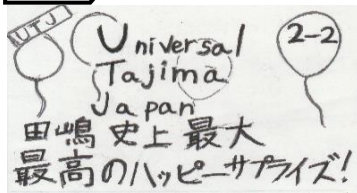 UTJ
Universal
2-2
Tajima
Japan
田嶋史上最大
最高のハッピーサプライズ!